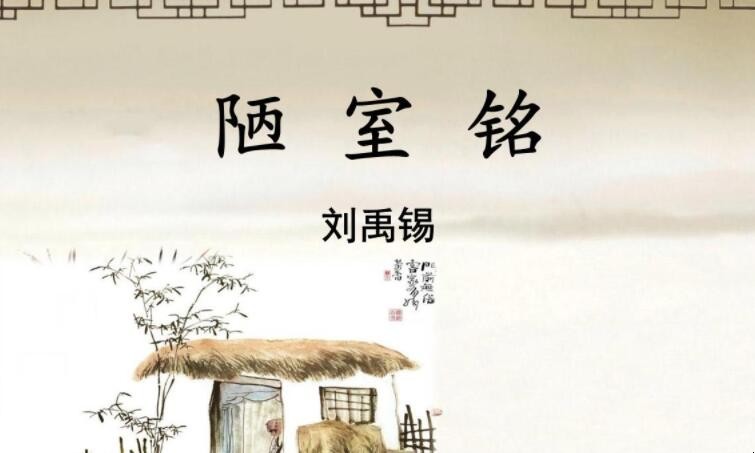 陋室铭
刘禹锡